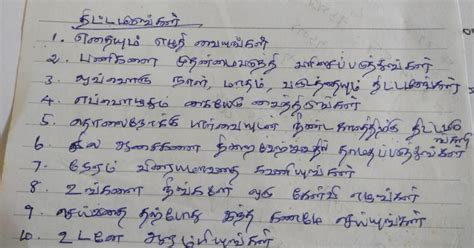 திட்டமிடுங்கள்
1. எதையும் எழுதி வையுங்கள்
2. பணிகளை முதன்மைபடுத்தி வரிசைப்படுத்துங்கள்
3. ஒவ்வொரு நாள், மாதம், வருடத்தையும் திட்டமிடுங்கள்
4. எப்பொழுதும் கையேடு வைத்திடுங்கள்
5. தொலைநோக்கு பார்வையுடன் நீண்ட காலத்திற்கு திட்டமிடுங்கள்
6 சில ஆசைகளை நிறைவேற்றுவதில் தாமதப்படுத்துங்கள்
7. நேரம் விரையமாவதை கவனியுங்கள்
8 உங்களை நீங்களே ஒரு கேள்வி எழுங்கள்
9 செய்வதை தற்போது இந்த கணமே செய்யுங்கள்
10. உடனே ஆரம்பியுங்கள்